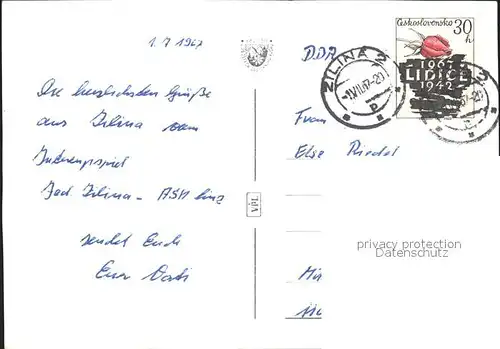 1. 7 1967
Die herzlichsten Grüße
aus Zilina vom
Bad Zilina - ASK Linz
sendet Euch
Euer Vati
VPL
DDR
Frau
Else Riedel
Československo
30
h
1967
LIDICE
1942
ZILINA 2
privacy protection
Datenschutz